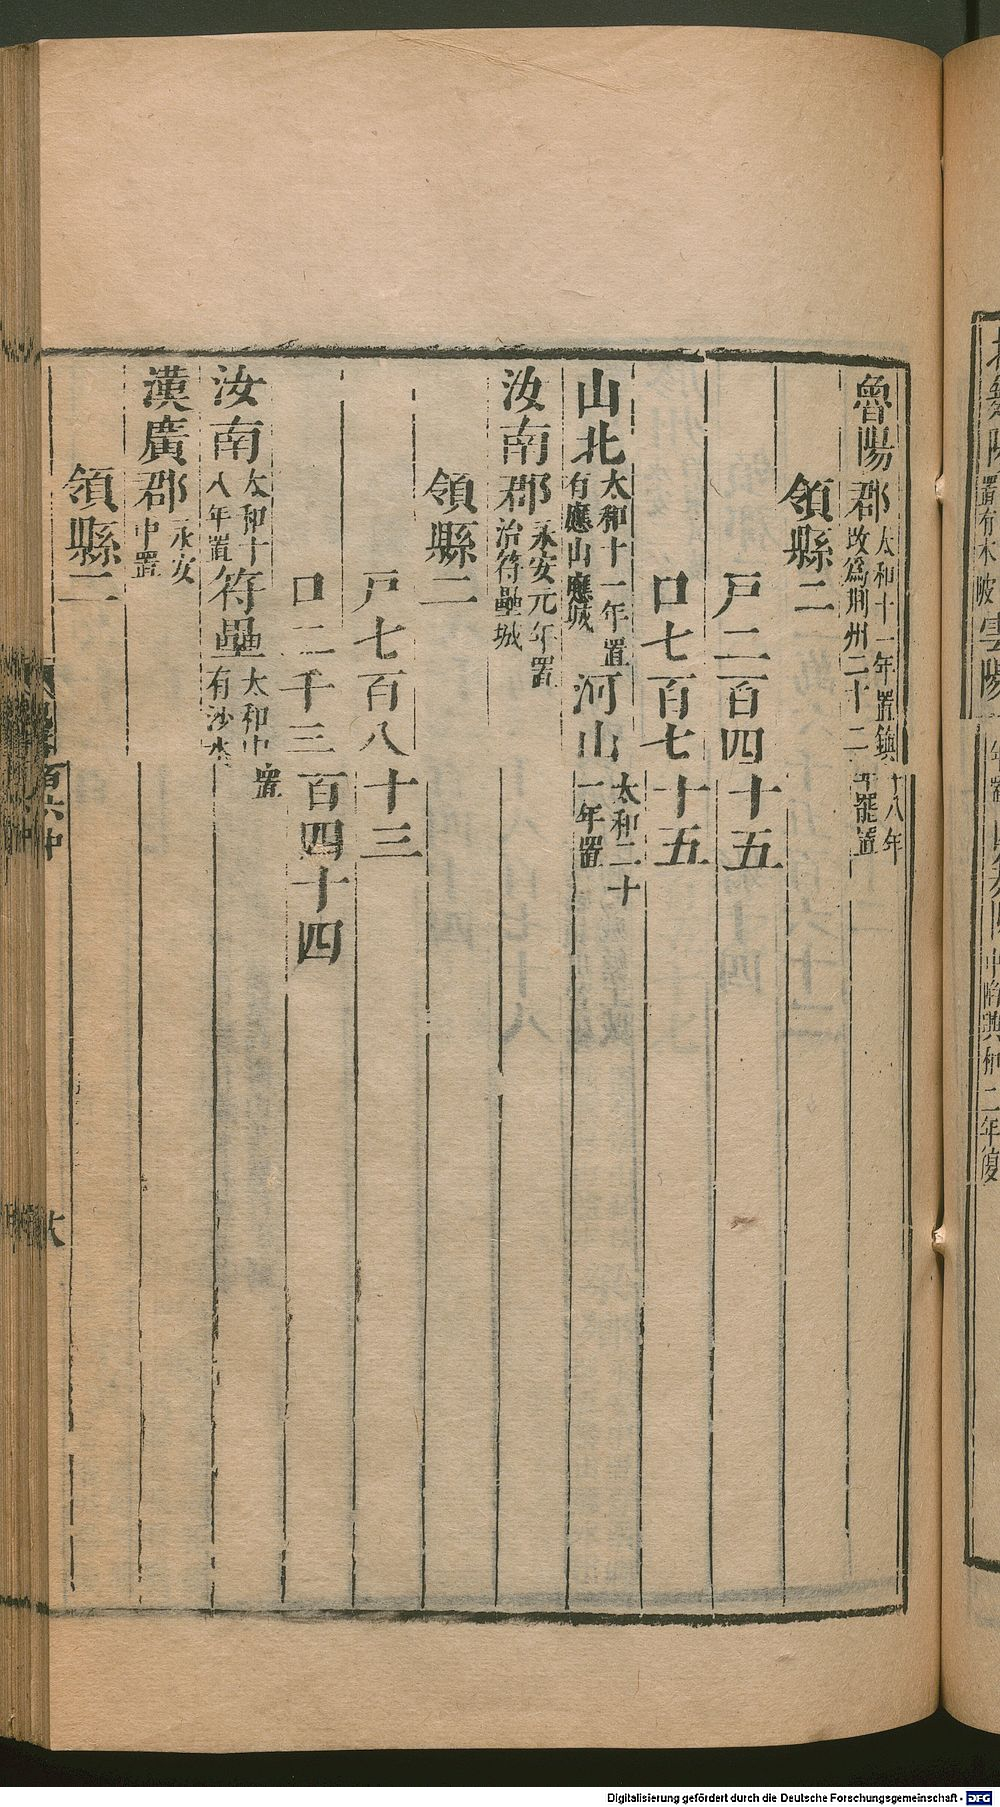 魯陽郡太和十一年置鎮十八年改為荆州二十二年罷置
領縣二
戶二百四十五
口七百七十五
山北太和十一年置有應山應城河山太和二十一年置
汝南郡永安元年置治符壘城
領縣二
戶七百八十三
口二千三百四十四
汝南太和十八年置符壘太和中置有沙水
漢廣郡永安中置
領縣二
百六中
置有木陂雲陽
二年復
Digitalisierung gefördert durch die Deutsche Forschungsgemeinschaft - DFG